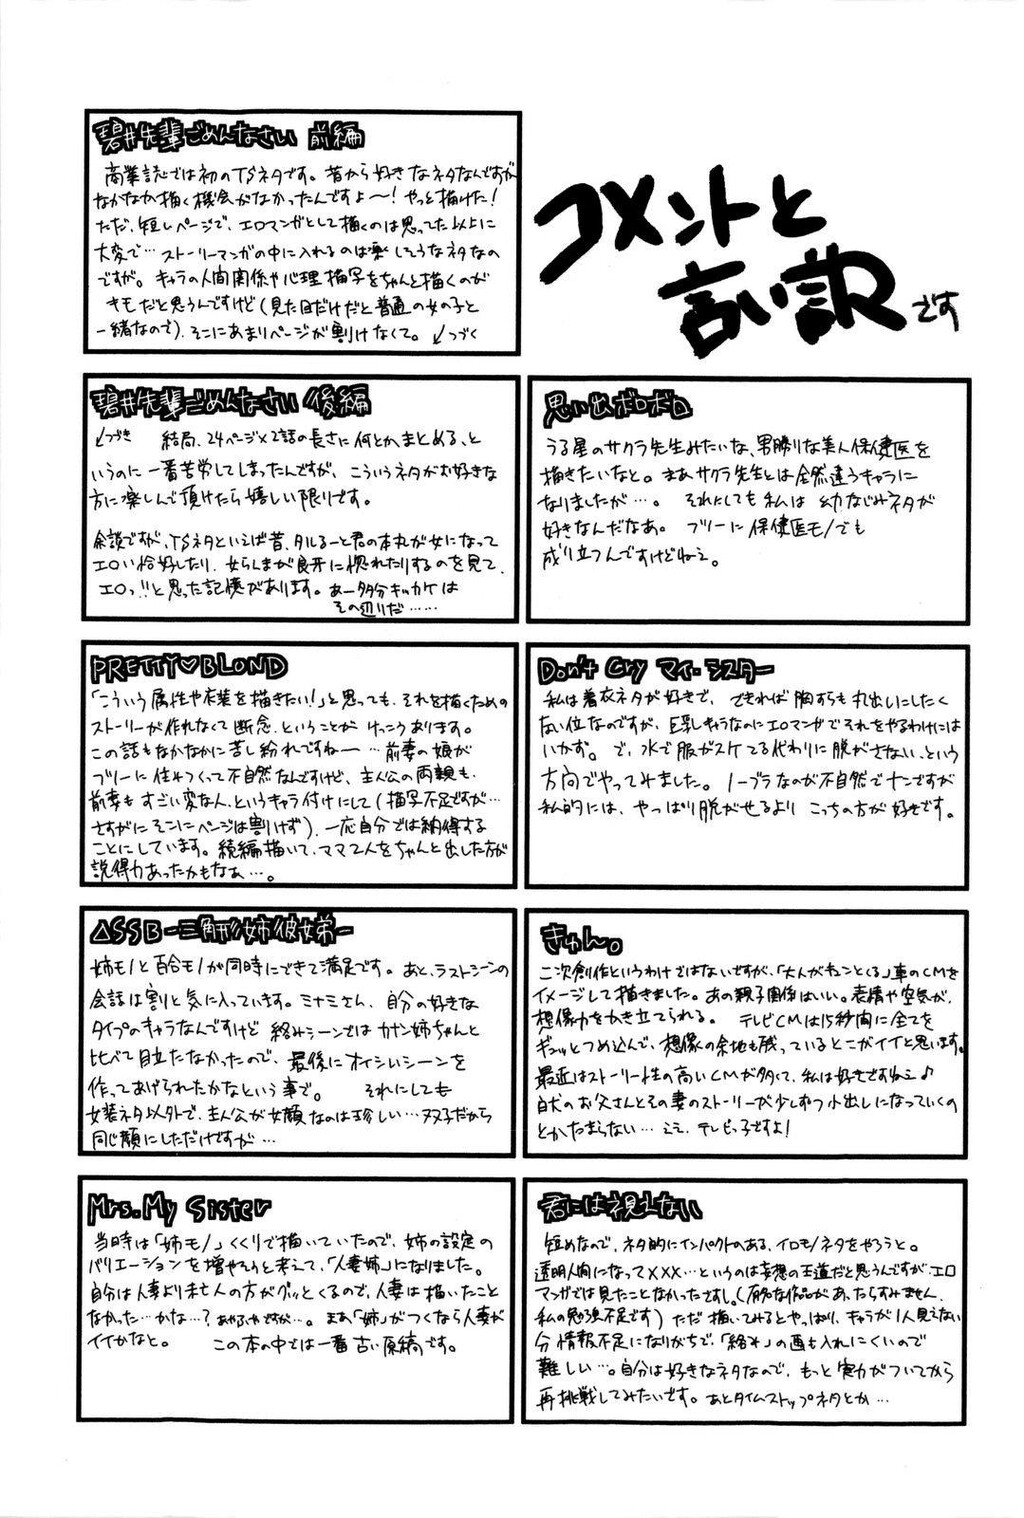 コメントと
言い訳です
碧井先輩ごめんなさい 前編
商業誌では初のTSネタです。昔から好きなネタなんですが
なかなか描く機会がなかったんですよ〜!やっと描けた!
ただ、短いページで、エロマンガとして描くのは思ってた以上に
大変で…ストーリーマンガの中に入れるのは楽しそうなネタなの
ですが。キャラの人間関係や心理描写をちゃんと描くのが
キモだと思うんですけど(見た目だけだと普通の女の子と
一緒なので)、そこにあまりページが割けなくて。↙つづく
碧井先輩ごめんなさい 後編
↖つづき 結局、24ページ×2話の長さに何とかまとめる、と
いうのに一番苦労してしまったんですが、こういうネタがお好きな
方に楽しんで頂けたら嬉しい限りです。
余談ですが、TSネタといえば昔、タルるート君の本丸が女になって
エロい恰好したり、女らしまが良牙に惚れたりするのを見て、
エロっ!!と思った記憶があります。あー多分キッカケは
その辺りだ……
思い出ボロボロ
うる星のサクラ先生みたいな、男勝りな美人保健医を
描きたいなと。まあサクラ先生とは全然違うキャラに
なりましたが…。それにしても私は幼なじみネタが
好きなんだなあ。フツーに保健医モノでも
成り立つんですけどねえ。
PRETTY♡BLOND
「こういう属性や衣装を描きたい!」と思っても、それを描くための
ストーリーが作れなくて断念、ということがけっこうあります。
この話もなかなかに苦し紛れですねー…前妻の娘が
フツーに住みつくって不自然なんですけど、主人公の両親も、
前妻もすごい変な人、というキャラ付けにして(描写不足ですが…
さすがにそこにページは割けず)、一応自分では納得する
ことにしています。続編描いて、ママ2人をちゃんと出した方が
説得力あったかもなぁ…。
Don't Cry マイ・シスター
私は着衣ネタが好きで、できれば胸すらも丸出しにしたく
ない位なのですが、巨乳キャラなのにエロマンガでそれをやるわけには
いかず。で、水で服がスケてる代わりに脱がさない、という
方向でやってみました。ノーブラなのが不自然でナンですが
私的には、やっぱり脱がせるよりこっちの方が好きです。
△SSB-三角形姉彼女弟-
姉モノと百合モノが同時にできて満足です。あと、ラストシーンの
会話は割と気に入っています。ミナミさん、自分の好きな
タイプのキャラなんですけど絡みシーンではカナン姉ちゃんと
比べて目立たなかったので、最後にオイシいシーンを
作ってあげられたかなという事で。それにしても
女装ネタ以外で、主人公が女顔なのは珍しい…双子だから
同じ顔にしただけですが…
きゅん。
二次創作というわけではないですが、「大人がキュンとくる」車のCMを
イメージして描きました。あの親子関係はいい。表情や空気が、
想像力をかき立てられる。テレビCMは15秒間に全てを
ギュッとつめ込んで、想像の余地も残っているとこがイイと思います。
最近はストーリー性の高いCMが多くて、私は好きですねえ♪
白犬のお父さんとその妻のストーリーが少しずつ小出しになっていくの
とかたまらない…ええ、テレビっ子ですよ!
Mrs.My Sister
当時は「姉モノ」くくりで描いていたので、姉の設定の
バリエーションを増やそうと考えて、「人妻姉」になりました。
自分は人妻より未亡人の方がグッとくるので、人妻は描いたこと
なかった…かな…?あやふやですが…。まあ「姉」がつくなら人妻が
イイかなと。この本の中では一番古い原稿です。
君には視えない
短めなので、ネタ的にインパクトのある、イロモノネタをやろうと。
透明人間になって×××…というのは妄想の王道だと思うんですが、エロ
マンガでは見たことなかったですし。(有名な作品があったらすみません、
私の勉強不足です)ただ描いてみるとやっぱり、キャラが1人見えない
分情報不足になりがちで、「絡み」の画も入れにくいので
難しい…。自分は好きなネタなので、もっと実力がついてから
再挑戦してみたいです。あとタイムストップネタとか…